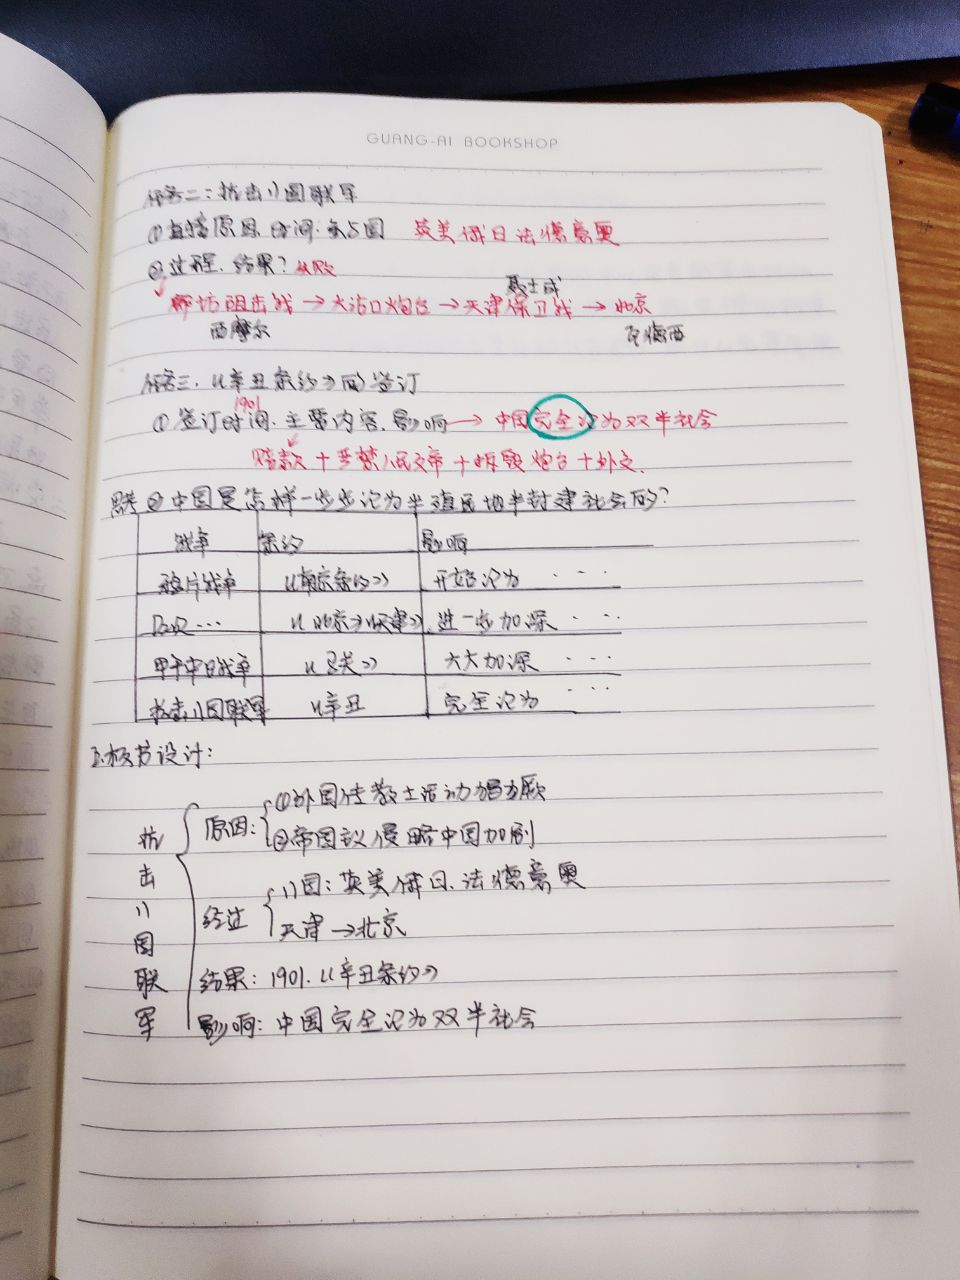 GUANG-AI BOOKSHOP
任务二：抗击八国联军
①直接原因、时间、参与国 英美俄日法德意奥
②过程、结果？失败
聂士成
廊坊阻击战→大沽口炮台→天津保卫战→北京
西摩尔 瓦德西
任务三、《辛丑条约》的签订
1901
①签订时间、主要内容、影响→中国完全沦为双半社会
赔款+严禁人民反帝+拆毁炮台+外交.
思考②中国是怎样一步步沦为半殖民地半封建社会的？
战争 条约 影响
鸦片战争 《南京条约》 开始沦为 ···
··· 《北京》《天津》 进一步加深 ···
甲午中日战争 《马关》 大大加深 ···
抗击八国联军 《辛丑 完全沦为 ···
板书设计：
抗击八国联军
原因：①外国传教士活动猖獗
②帝国议侵略中国加剧
经过 八国：英美俄日、法德意奥
天津→北京
结果：1901.《辛丑条约》
影响：中国完全沦为双半社会